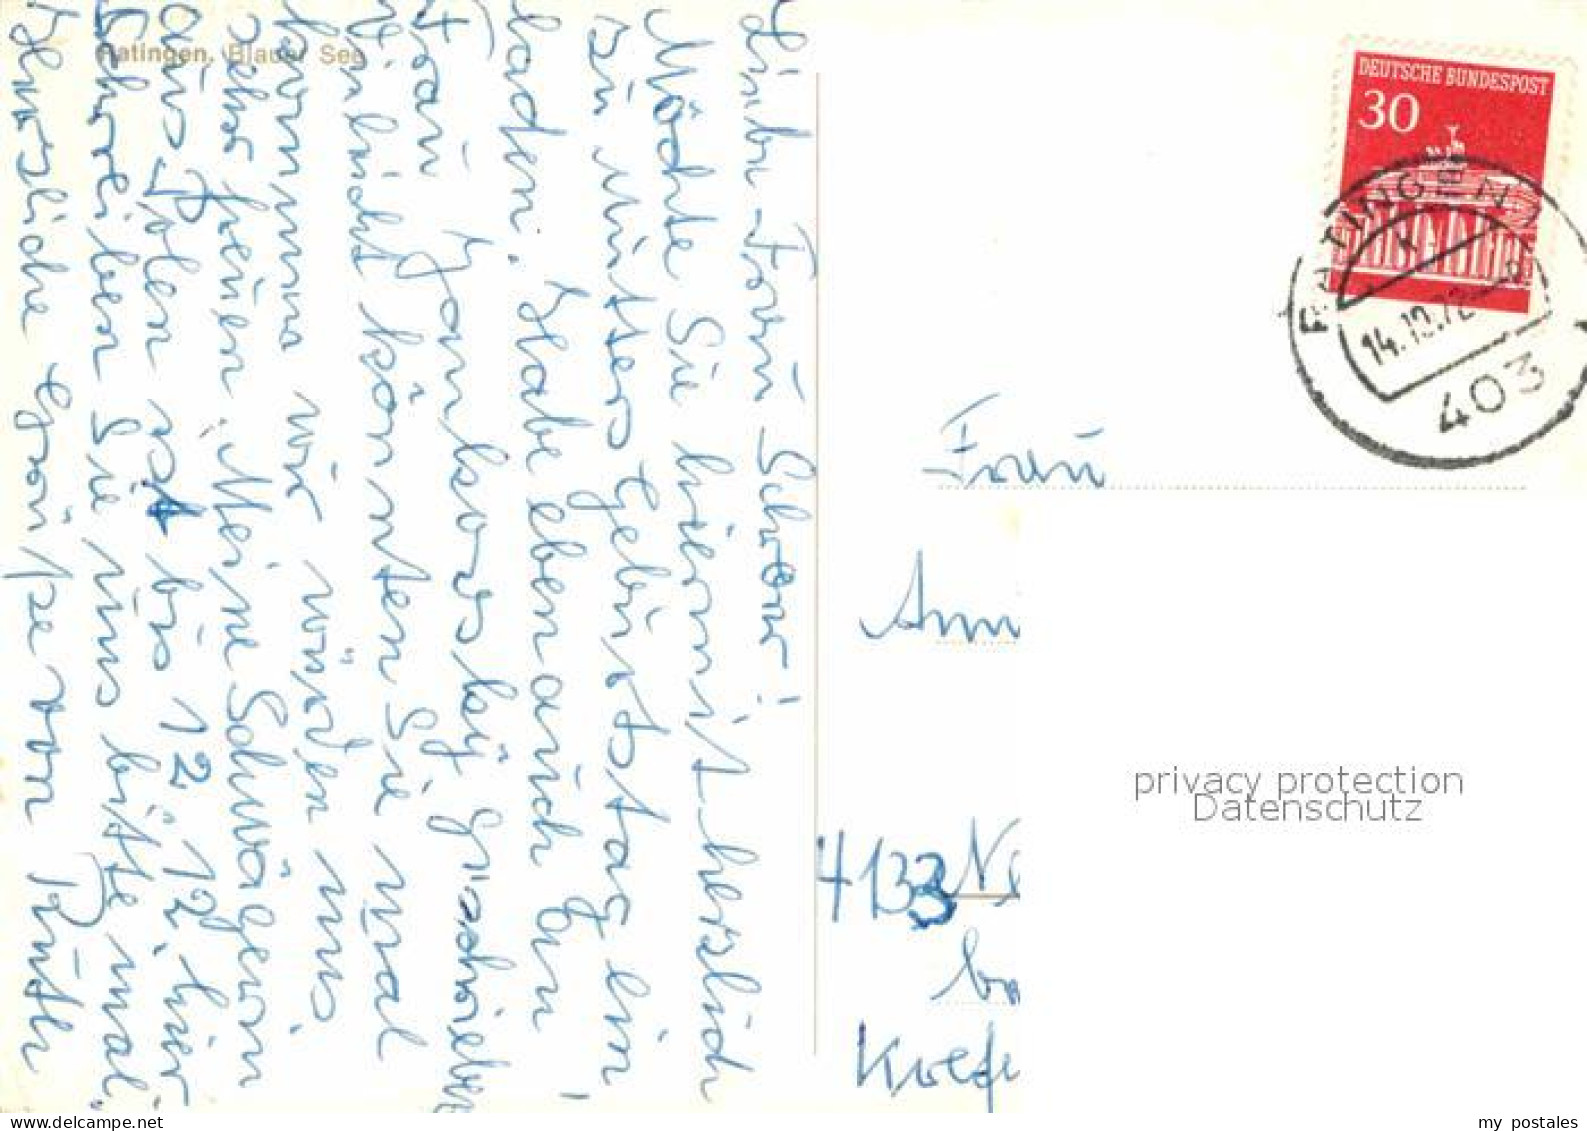 Ratingen, Blauer See
Liebe Frau Schorr!
Möchte Sie hiermit herzlich
zu Mutters Geburtstag ein
laden. Habe eben auch an
Frau Jankowsky geschrieben!
Vieleicht könnten Sie mal
kommen wir würden uns
sehr freuen. Meine Schwägerin
aus Polen ist bis 12.12. hier
Schreiben Sie uns bitte mal.
Herzliche Grüße von Ruth
DEUTSCHE BUNDESPOST
30
RATINGEN 1
14.10.72
403
Frau
Ann
4133
Krefe
privacy protection
Datenschutz
my postales